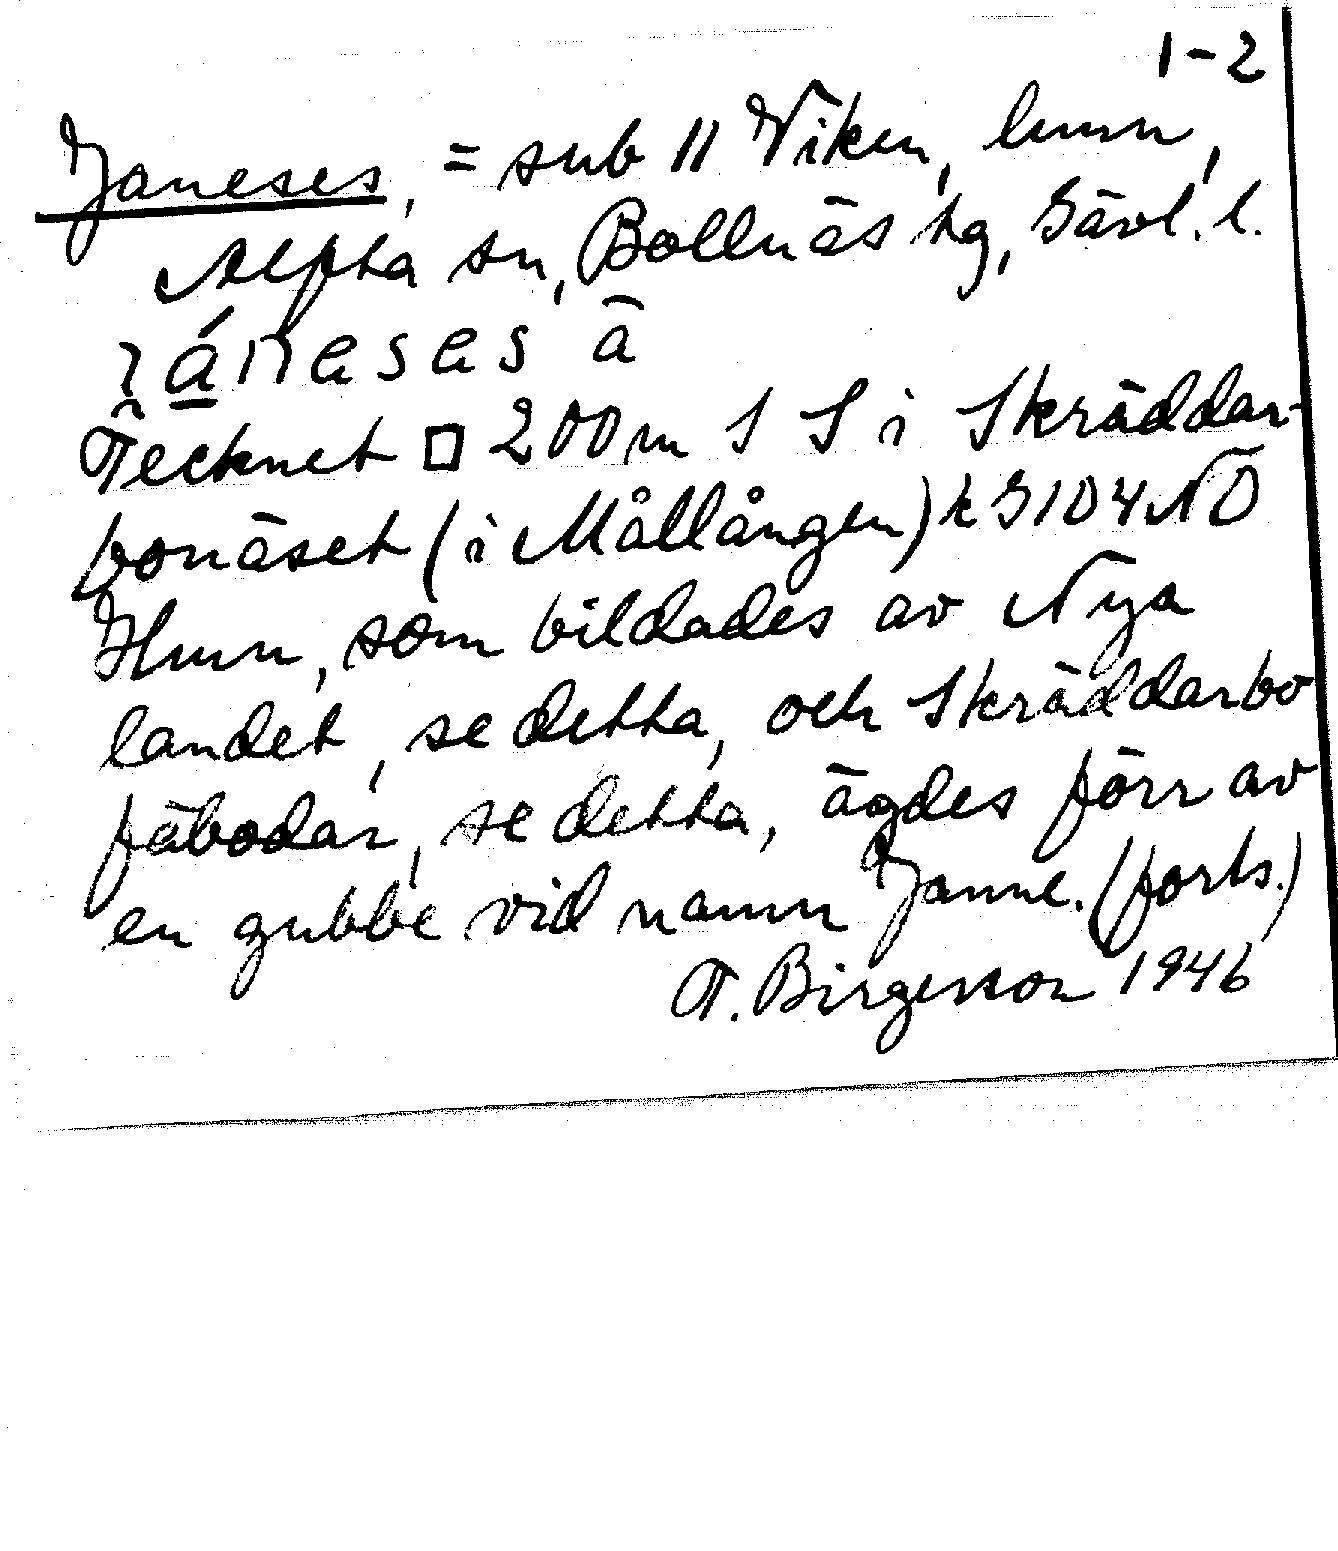 1-2
Janeses, = sub 11 Viken, lmn,
Alfta sn, Bollnäs tg, Gävl. l.
Tecknet □ 200 m S S i Skräddar-
bonäset (i Mållången) k G 104 NO
Hmn, som bildades av Nya
landet, se detta, och Skräddarbo
fäbodar, se detta, ägdes förr av
en gubbe vid namn Janne. (forts.)
T. Birgersson 1946